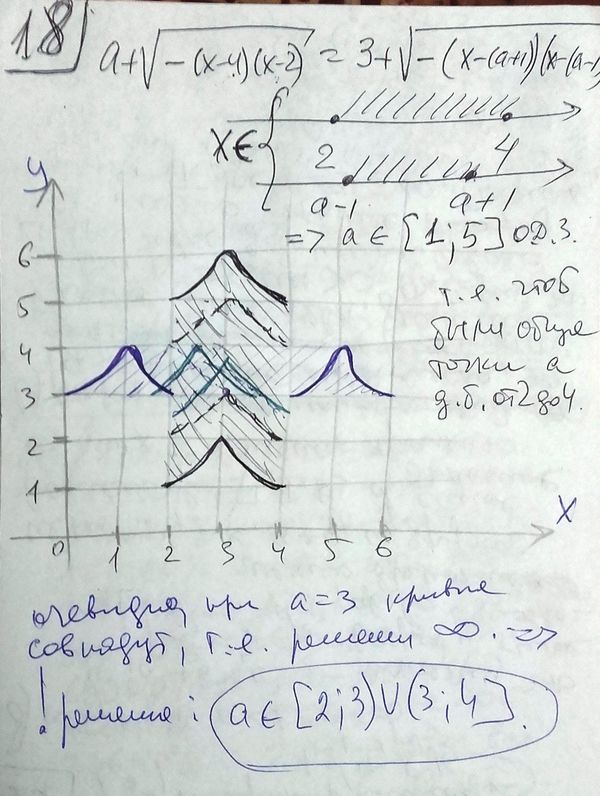 18
a+√-(x-4)(x-2) = 3+√-(x-(a+1)(x-(a-1)
x∈{
2 4
a-1 a+1
=> a ∈ [1;5] ОДЗ.
т.е. чтоб
были общие
точки а
д.б. от 2 до 4.
y
6
5
4
3
2
1
0 1 2 3 4 5 6
x
очевидно, при a=3 кривые
совпадут, т.е. решений ∞. =>
! решение: a∈[2;3)U(3;4].